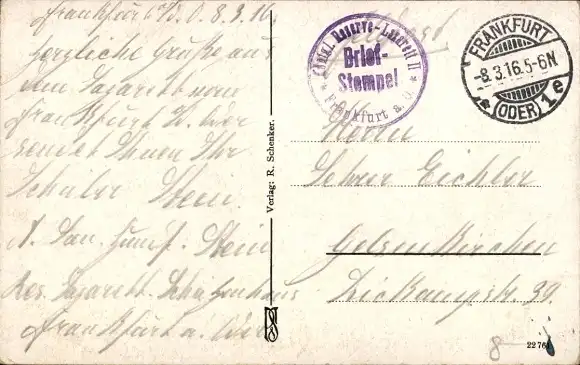 Frankfurt a/O. 8.3.16.
Herzliche Grüße aus
dem Lazarett von
Frankfurt a. Oder
sendet Ihnen Ihr
Schüler Stein
Stein
Res. Lazarett Schützenhaus
Frankfurt a. Oder
Verlag: R. Schenker.
Königl. Reserve-Lazarett II
Brief-
Stempel
Frankfurt a. O.
FRANKFURT
-8.3.16.5-6N.
* (ODER) 1e
Herrn
Lehrer Eichler
Gelsenkirchen
39.
8
2276